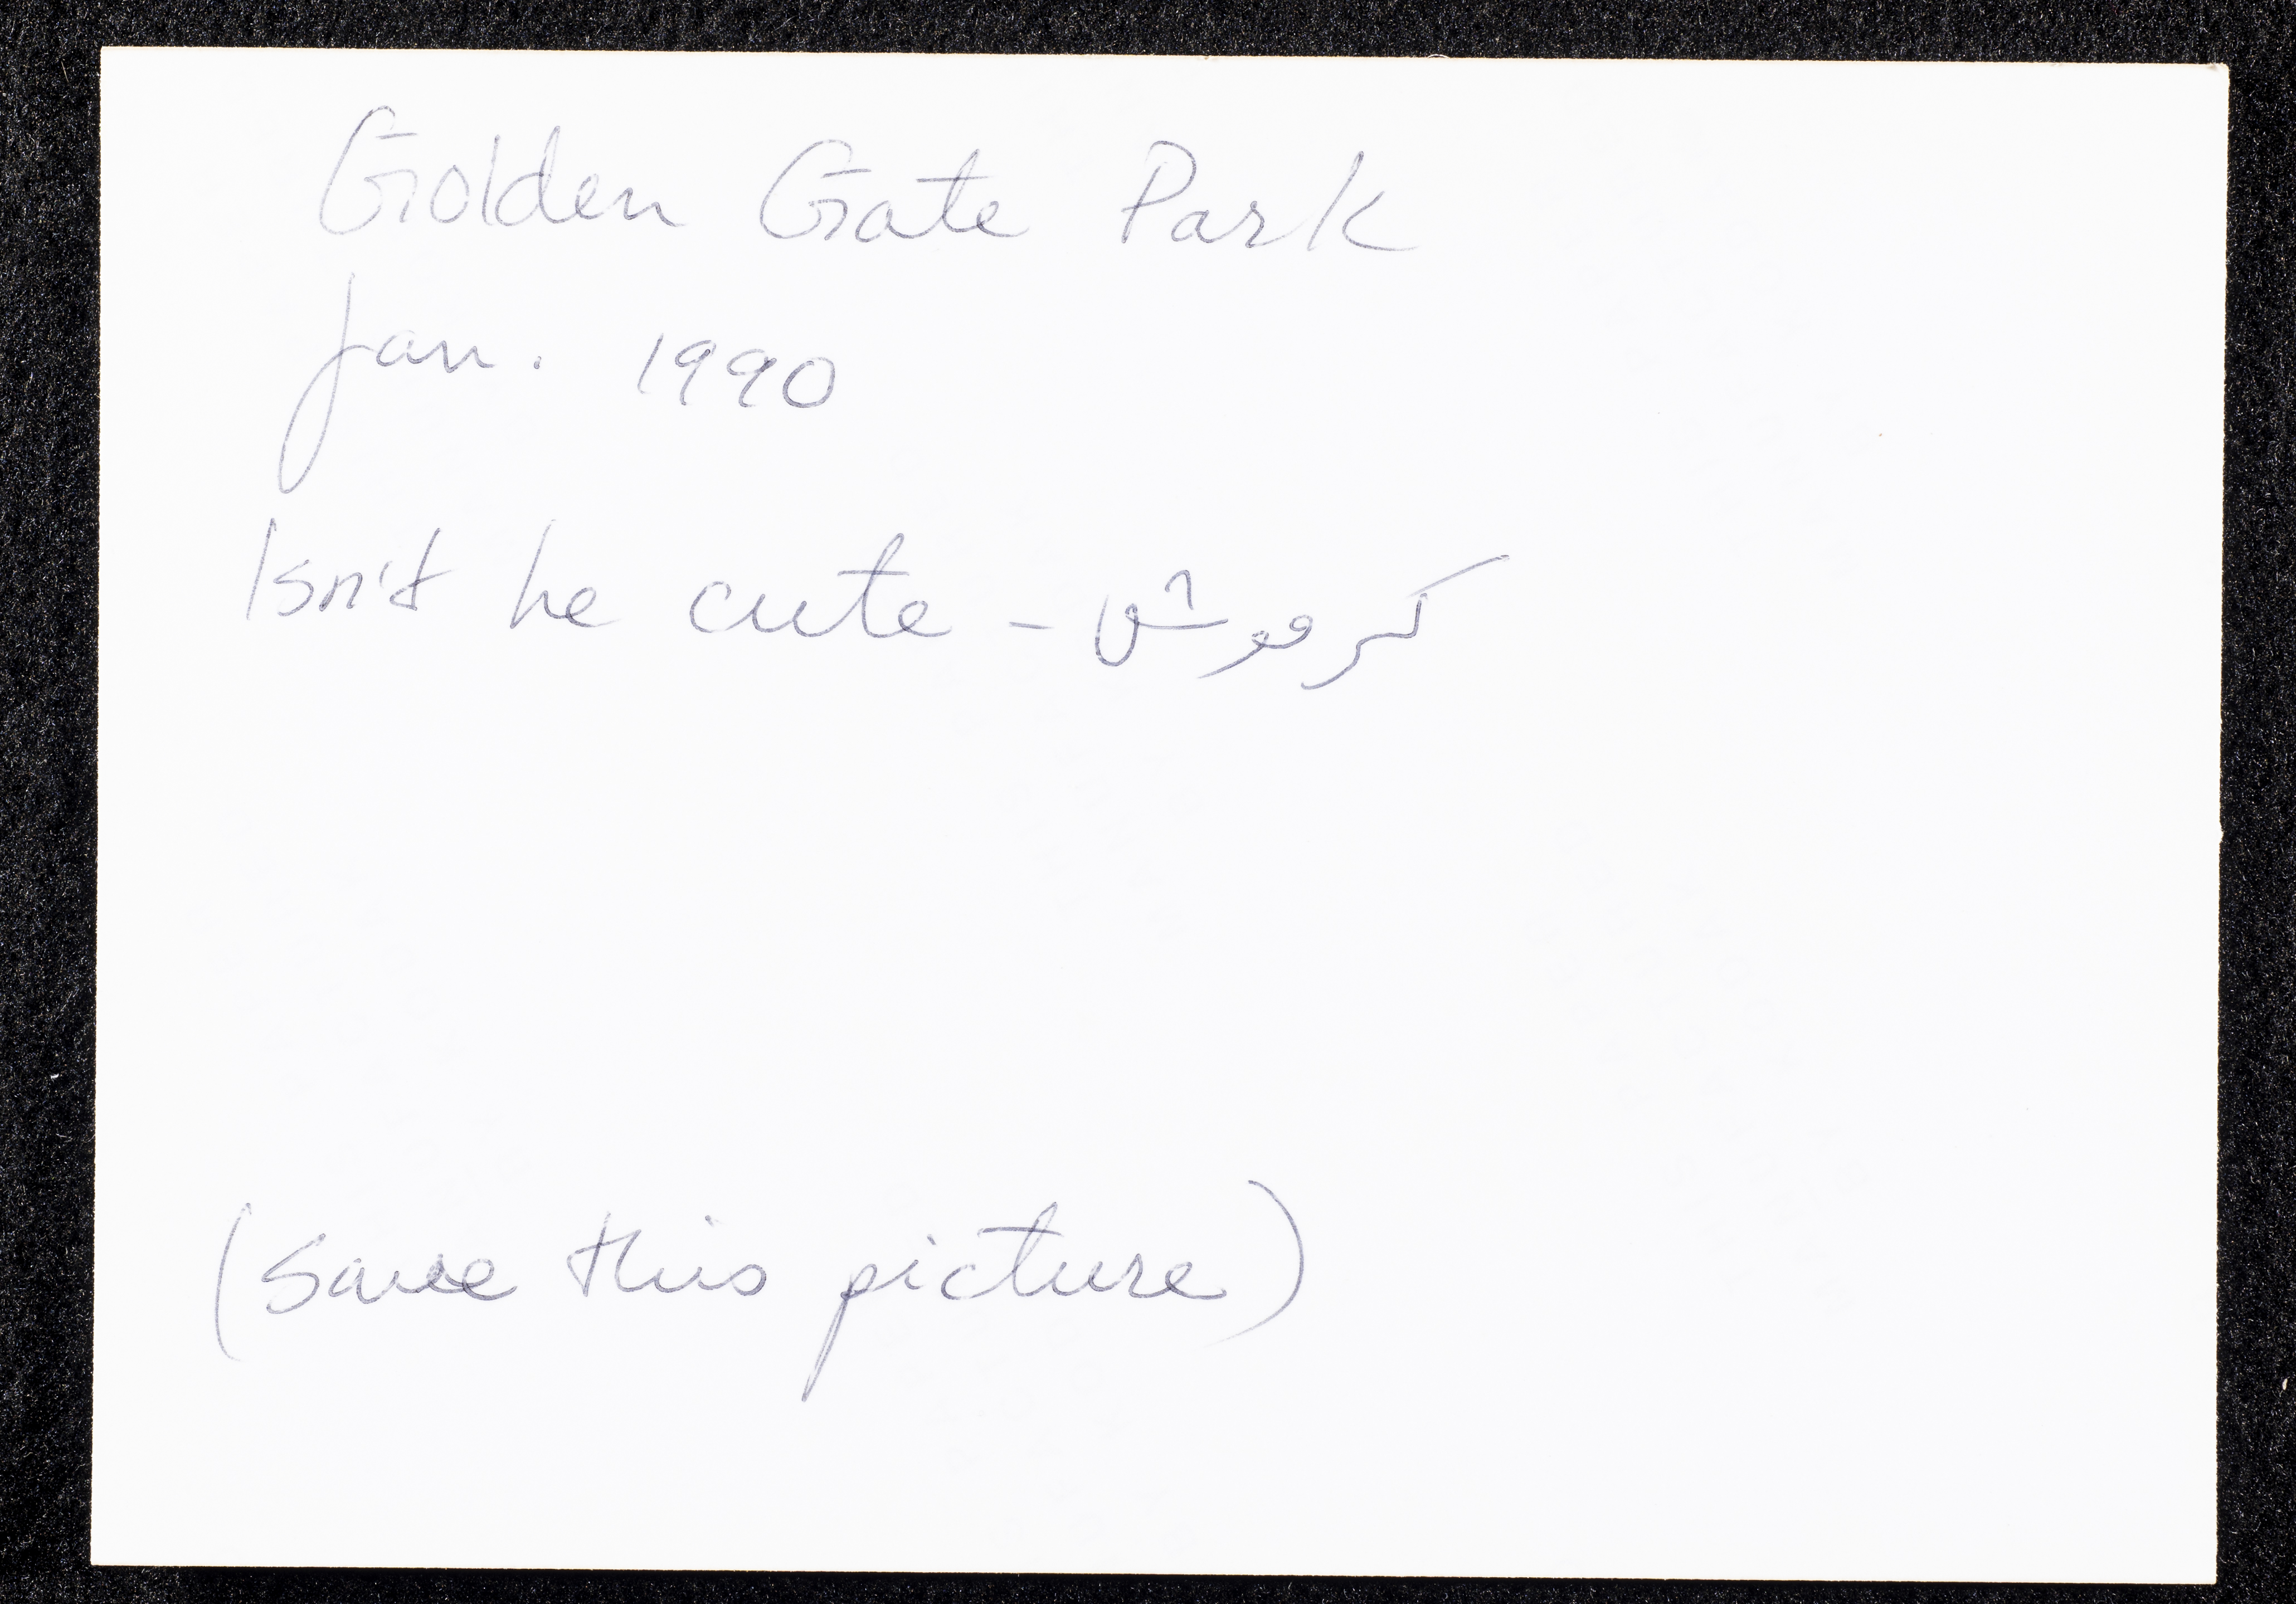 Golden Gate Park
Jan. 1990
Isn't he cute - كرموش
(save this picture)